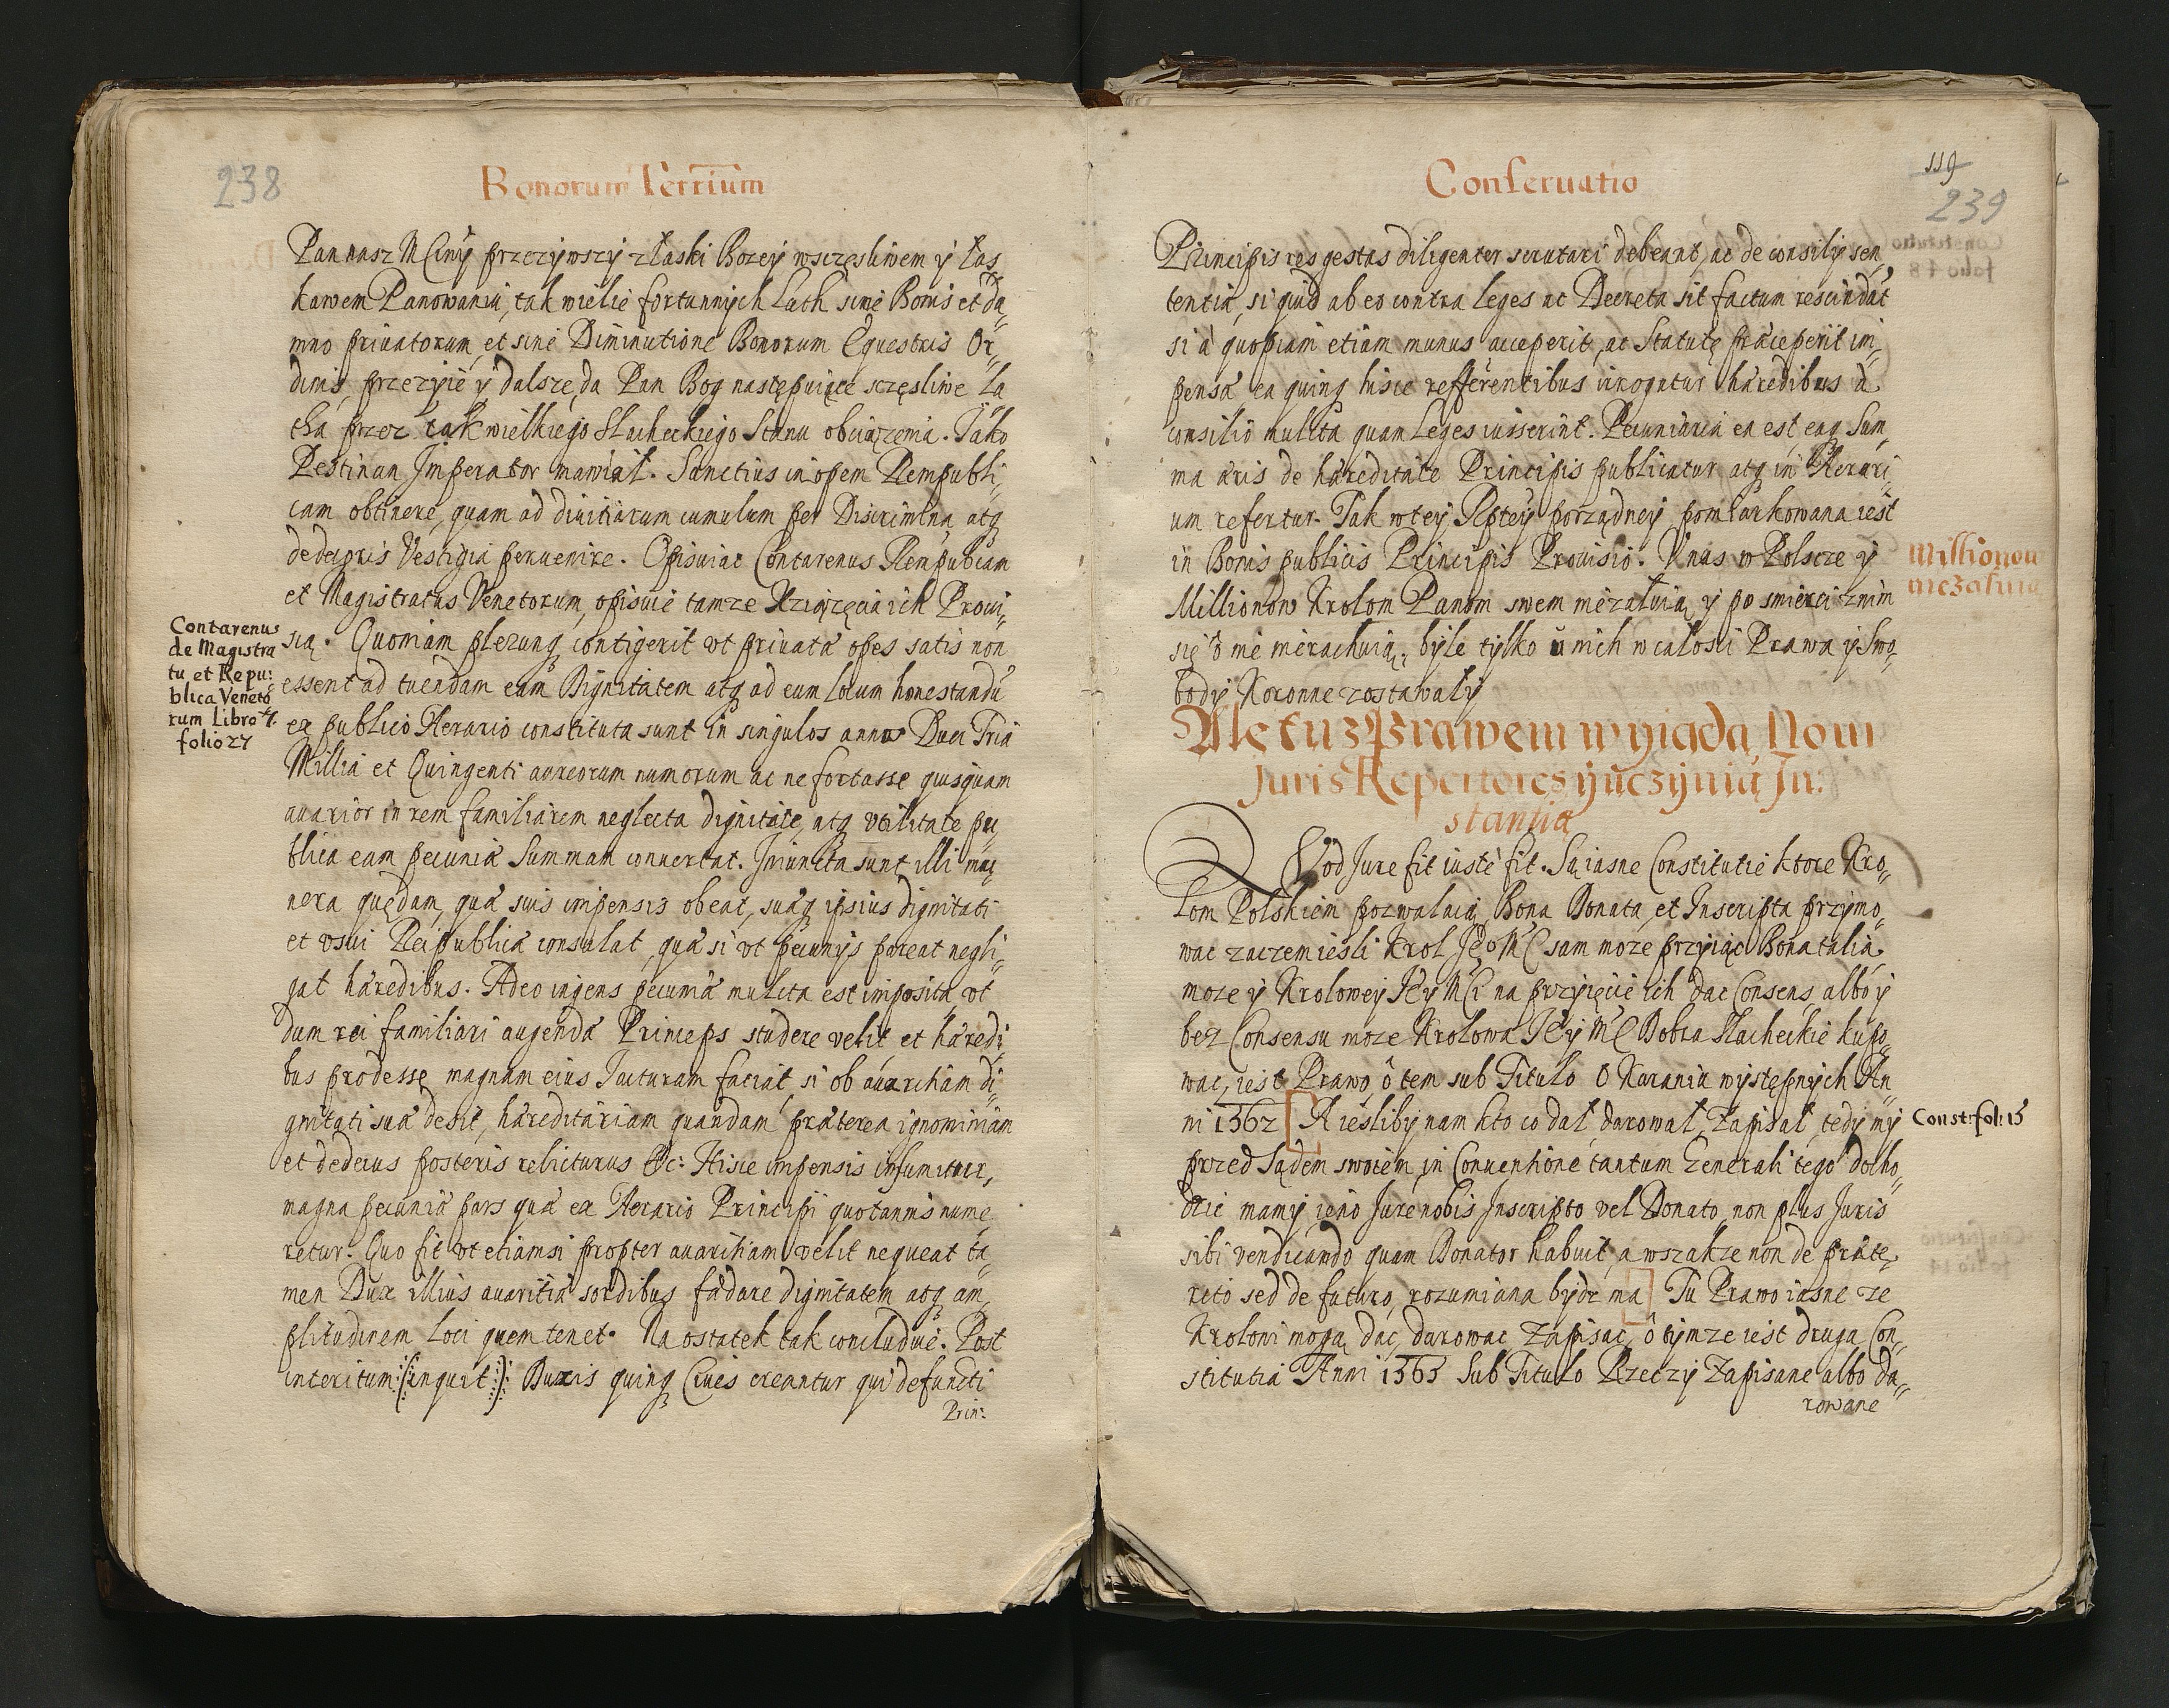 238
Bonorum Terr̃ium
Pan nasz MCiwy przezywszy z łaski Bozey w sczęsliwem y łas„
kawem Panowaniu, tak wielie fortunnych Lath sine Bonis et da„
mno priuatorum, et sine Diminutione Bonorum Equestris Or„
dinis, przezyie y dalsze da Pan Bog następuiące sczęsliwe La„
tha przez tak wielkiego Slacheckiego Stanu obciązenia. Jako
Pestinan Imperator mawiał. Sanctius inopem Rempubli„
cam obtinere, quam ad diuitiarum cumulum per Discrimina, atq
dedecoris Vestigia peruenire. Opisuiąc Contarenus Rempubcam
et Magistratus Venetorum, opisuie tamze Xziązęcia ich Proui„
sią. Quoniam plerunq contigerit vt priuatæ opes satis non
essent ad tuendam eam Dignitatem atq ad eum locum honestandũ
ex publico Aerario constituta sunt in singulos annos Duci Tria
Millia et Quingenti aureorum numorum ac ne fortasse quisquam
auarior in rem familiarem neglecta dignitate, atq vtilitate pu„
blica eam pecuniæ Summam conuertat. Iniuncta sunt illi mu„
nera quędam, quæ suis impensis obeat, suæq ipsius dignitati
et vsui Reipublicæ consulat, quæ si vt pecunijs parcat negli„
gat hæredibus. Adeo ingens pecuniæ mulcta est imposita, vt
dum rei familiari augendæ Princeps studere velit et hæredi„
bus prodesse magnam eius Iacturam faciat, si ob auaritiam di„
gnitati suæ desit, hæreditariam quandam præterea ignominiam
et dedecus posteris relicturus &c: Hisce impensis insumitur,
magna pecuniæ pars quæ ex Aerario Principi quotannis nume„
retur. Quo fit vt etiamsi propter auaritiam velit nequeat ta„
men Dux illius auaritiæ sordibus fædare dignitatem atq am„
plitudinem loci quem tenet. Na ostatek tak concluduie. Post
interitum (inquit) Ducis quinq Ciues creantur qui defuncti
Prin:
Contarenus
de Magistra
tu et Repu:
blica Veneto
rum Libro
folio 27
Conseruatio
119
239
Principis res gestas diligenter scrutari debeant, ac de consilij sen„
tentia, si quid ab eo contra leges ac Decreta sit factum rescindãt
si à quopiam etiam munus acceperit, ac Statutę præceperit im„
pensæ ea quinq hisce refferentibus irrogatur hæredibus à
consilio mulcta quam Leges iusserint. Pecuniaria ea est, eaq Sum„
ma æris de hæreditate Principis publicatur atq in Aerari„
um refertur. Tak w tey Rptey porządney pomiarkowana iest
in Bonis publicis Principis Prouisio. V nas w Polscze y
Millionow Krolom Panom swem niezałuią, y po smierci z nim
się o nie nierachuią, byle tylko u nich w całosci Prawa y Swo„
body Koronne zostawały
Ale tu z Prawem wyiada Noui
Juris Repertores y uczynią In:
stantią
Quod Jure fit iustè fit. Są iasne Constitutie ktore Kro„
lom Polskiem pozwalaią Bona Donata, et Inscripta przymo„
wac zaczem iesli Krol Jego MC sam moze przyiąc Bona talia,
moze y Krolowey Jey MCi na przyięcie ich dac Consens, albo y
bez Consensu moze Krolowa Jey MC Dobra Slacheckie kupo„
wac, iest Prawo o tem sub Titulo O Karaniu występnych An„
ni 1562 [A ieslibynam kto co dał, darował, Zapisał, tedy my
przed Sądem swoiem, in Conuentione tantum Generali tego docho„
dzic mamy ieno Jure nobis Inscripto vel Donato, non plus Juris
sibi vendicando quam Donator habuit, a wszakze non de præte„
rito sed de futuro, rozumiana bydz ma] Tu Prawo iasne ze
Krolowi mogą dac, darowac Zapisac, o tymze iest druga Con„
stitutia Anni 1565 Sub Titulo Rzeczy Zapisane albo da„
rowane
Millionow
niezałuią
Const: fol: 15